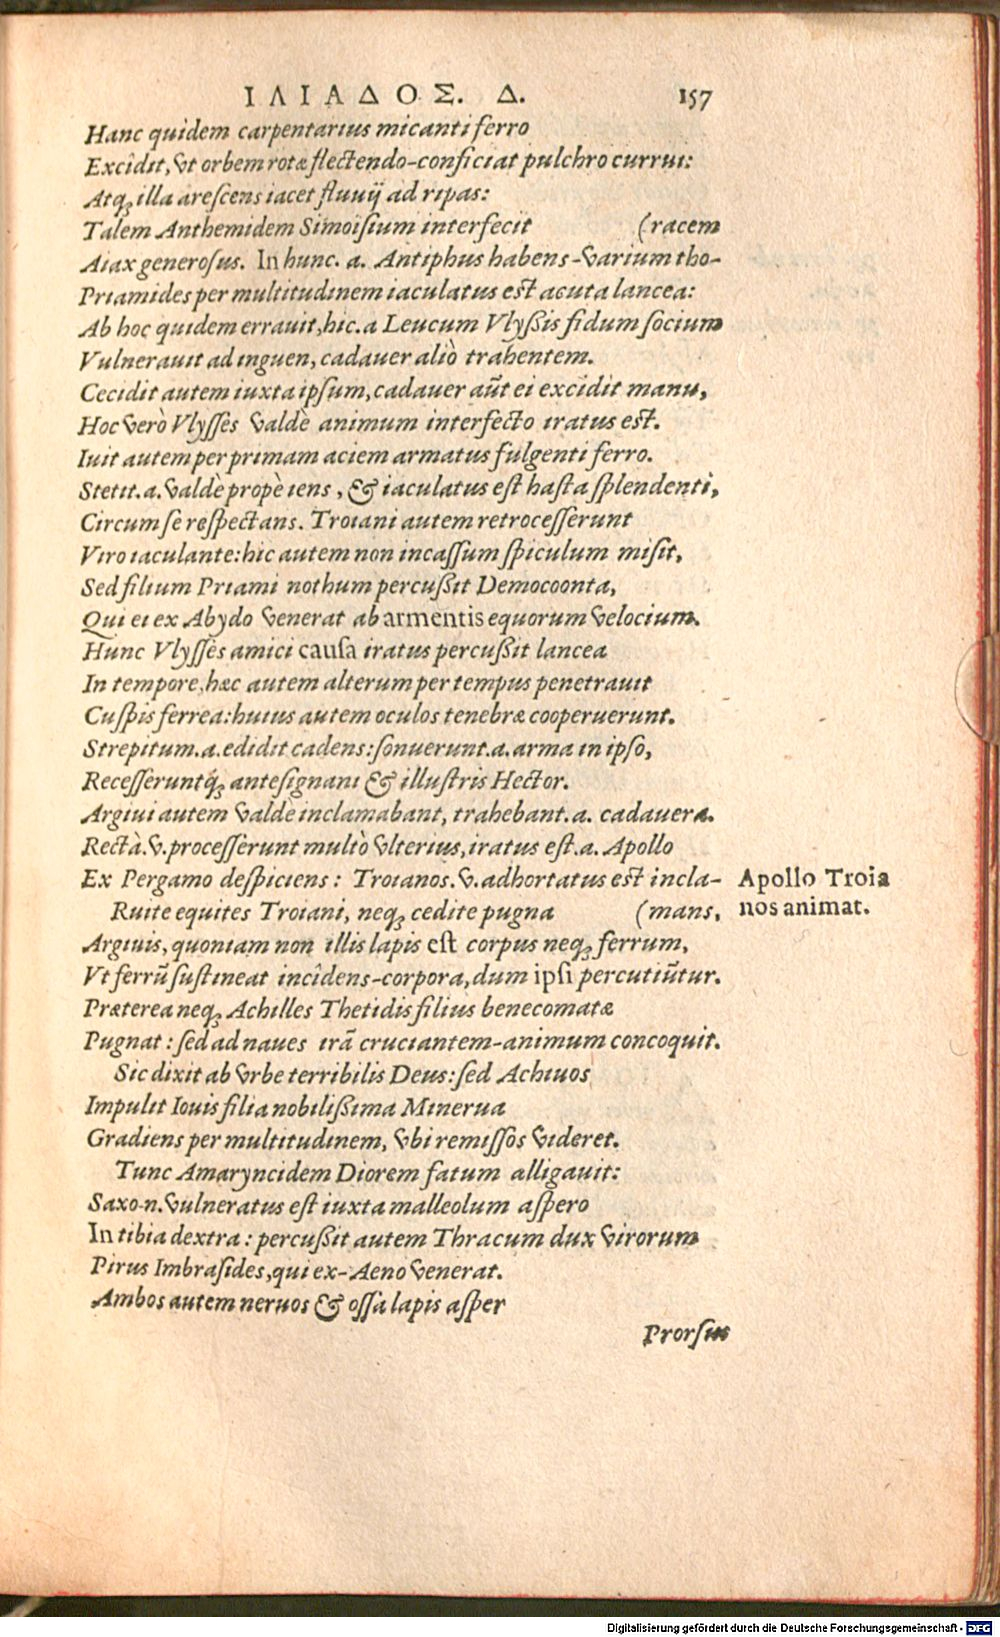 ΙΛΙΑΔΟΣ. Δ. 157
Hanc quidem carpentarius micanti ferro
Excîdit, vt orbem rotæ flectendo-conficiat pulchro currui:
Atq́; illa arescens iacet fluuij ad ripas:
Talem Anthemidem Simoisium interfecit (racem
Aiax generosus. In hunc. a. Antiphus habens-varium tho-
Priamides per multitudinem iaculatus est acuta lancea:
Ab hoc quidem errauit, hic. a Leucum Vlyßis fidum socium
Vulnerauit ad inguen, cadauer aliò trahentem.
Cecidit autem iuxta ipsum, cadauer aũt ei excidit manu,
Hoc verò Vlysses valdè animum interfecto iratus est.
Iuit autem per primam aciem armatus fulgenti ferro.
Stetit. a. valdè propè iens, & iaculatus est hasta splendenti,
Circum se respectans. Troiani autem retrocesserunt
Viro iaculante: hic autem non incassum spiculum misit,
Sed filium Priami nothum percußit Democoonta,
Qui ei ex Abydo venerat ab armentis equorum velocium.
Hunc Vlysses amici causa iratus percußit lancea
In tempore, hæc autem alterum per tempus penetrauit
Cuspis ferrea: huius autem oculos tenebræ cooperuerunt.
Strepitum. a. edidit cadens: sonuerunt. a. arma in ipso,
Recesseruntq́; antesignani & illustris Hector.
Argiui autem valdè inclamabant, trahebant. a. cadauera.
Rectà. v. processerunt multò vlterius, iratus est. a. Apollo
Ex Pergamo despiciens: Troianos. v. adhortatus est incla-
Ruite equites Troiani, neq; cedite pugna (mans,
Apollo Troia
nos animat.
Argiuis, quoniam non illis lapis est corpus neq; ferrum,
Vt ferrũ sustineat incîdens-corpora, dum ipsi percutiũtur.
Præterea neq; Achilles Thetidis filius benecomatæ
Pugnat: sed ad naues irã cruciantem-animum concoquit.
Sic dixit ab vrbe terribilis Deus: sed Achiuos
Impulit Iouis filia nobilißima Minerua
Gradiens per multitudinem, vbi remissos videret.
Tunc Amaryncidem Diorem fatum alligauit:
Saxo. n. vulneratus est iuxta malleolum aspero
In tibia dextra: percußit autem Thracum dux virorum
Pirus Imbrasides, qui ex-Aeno venerat.
Ambos autem neruos & ossa lapis asper
Prorsus
Digitalisierung gefördert durch die Deutsche Forschungsgemeinschaft - DFG